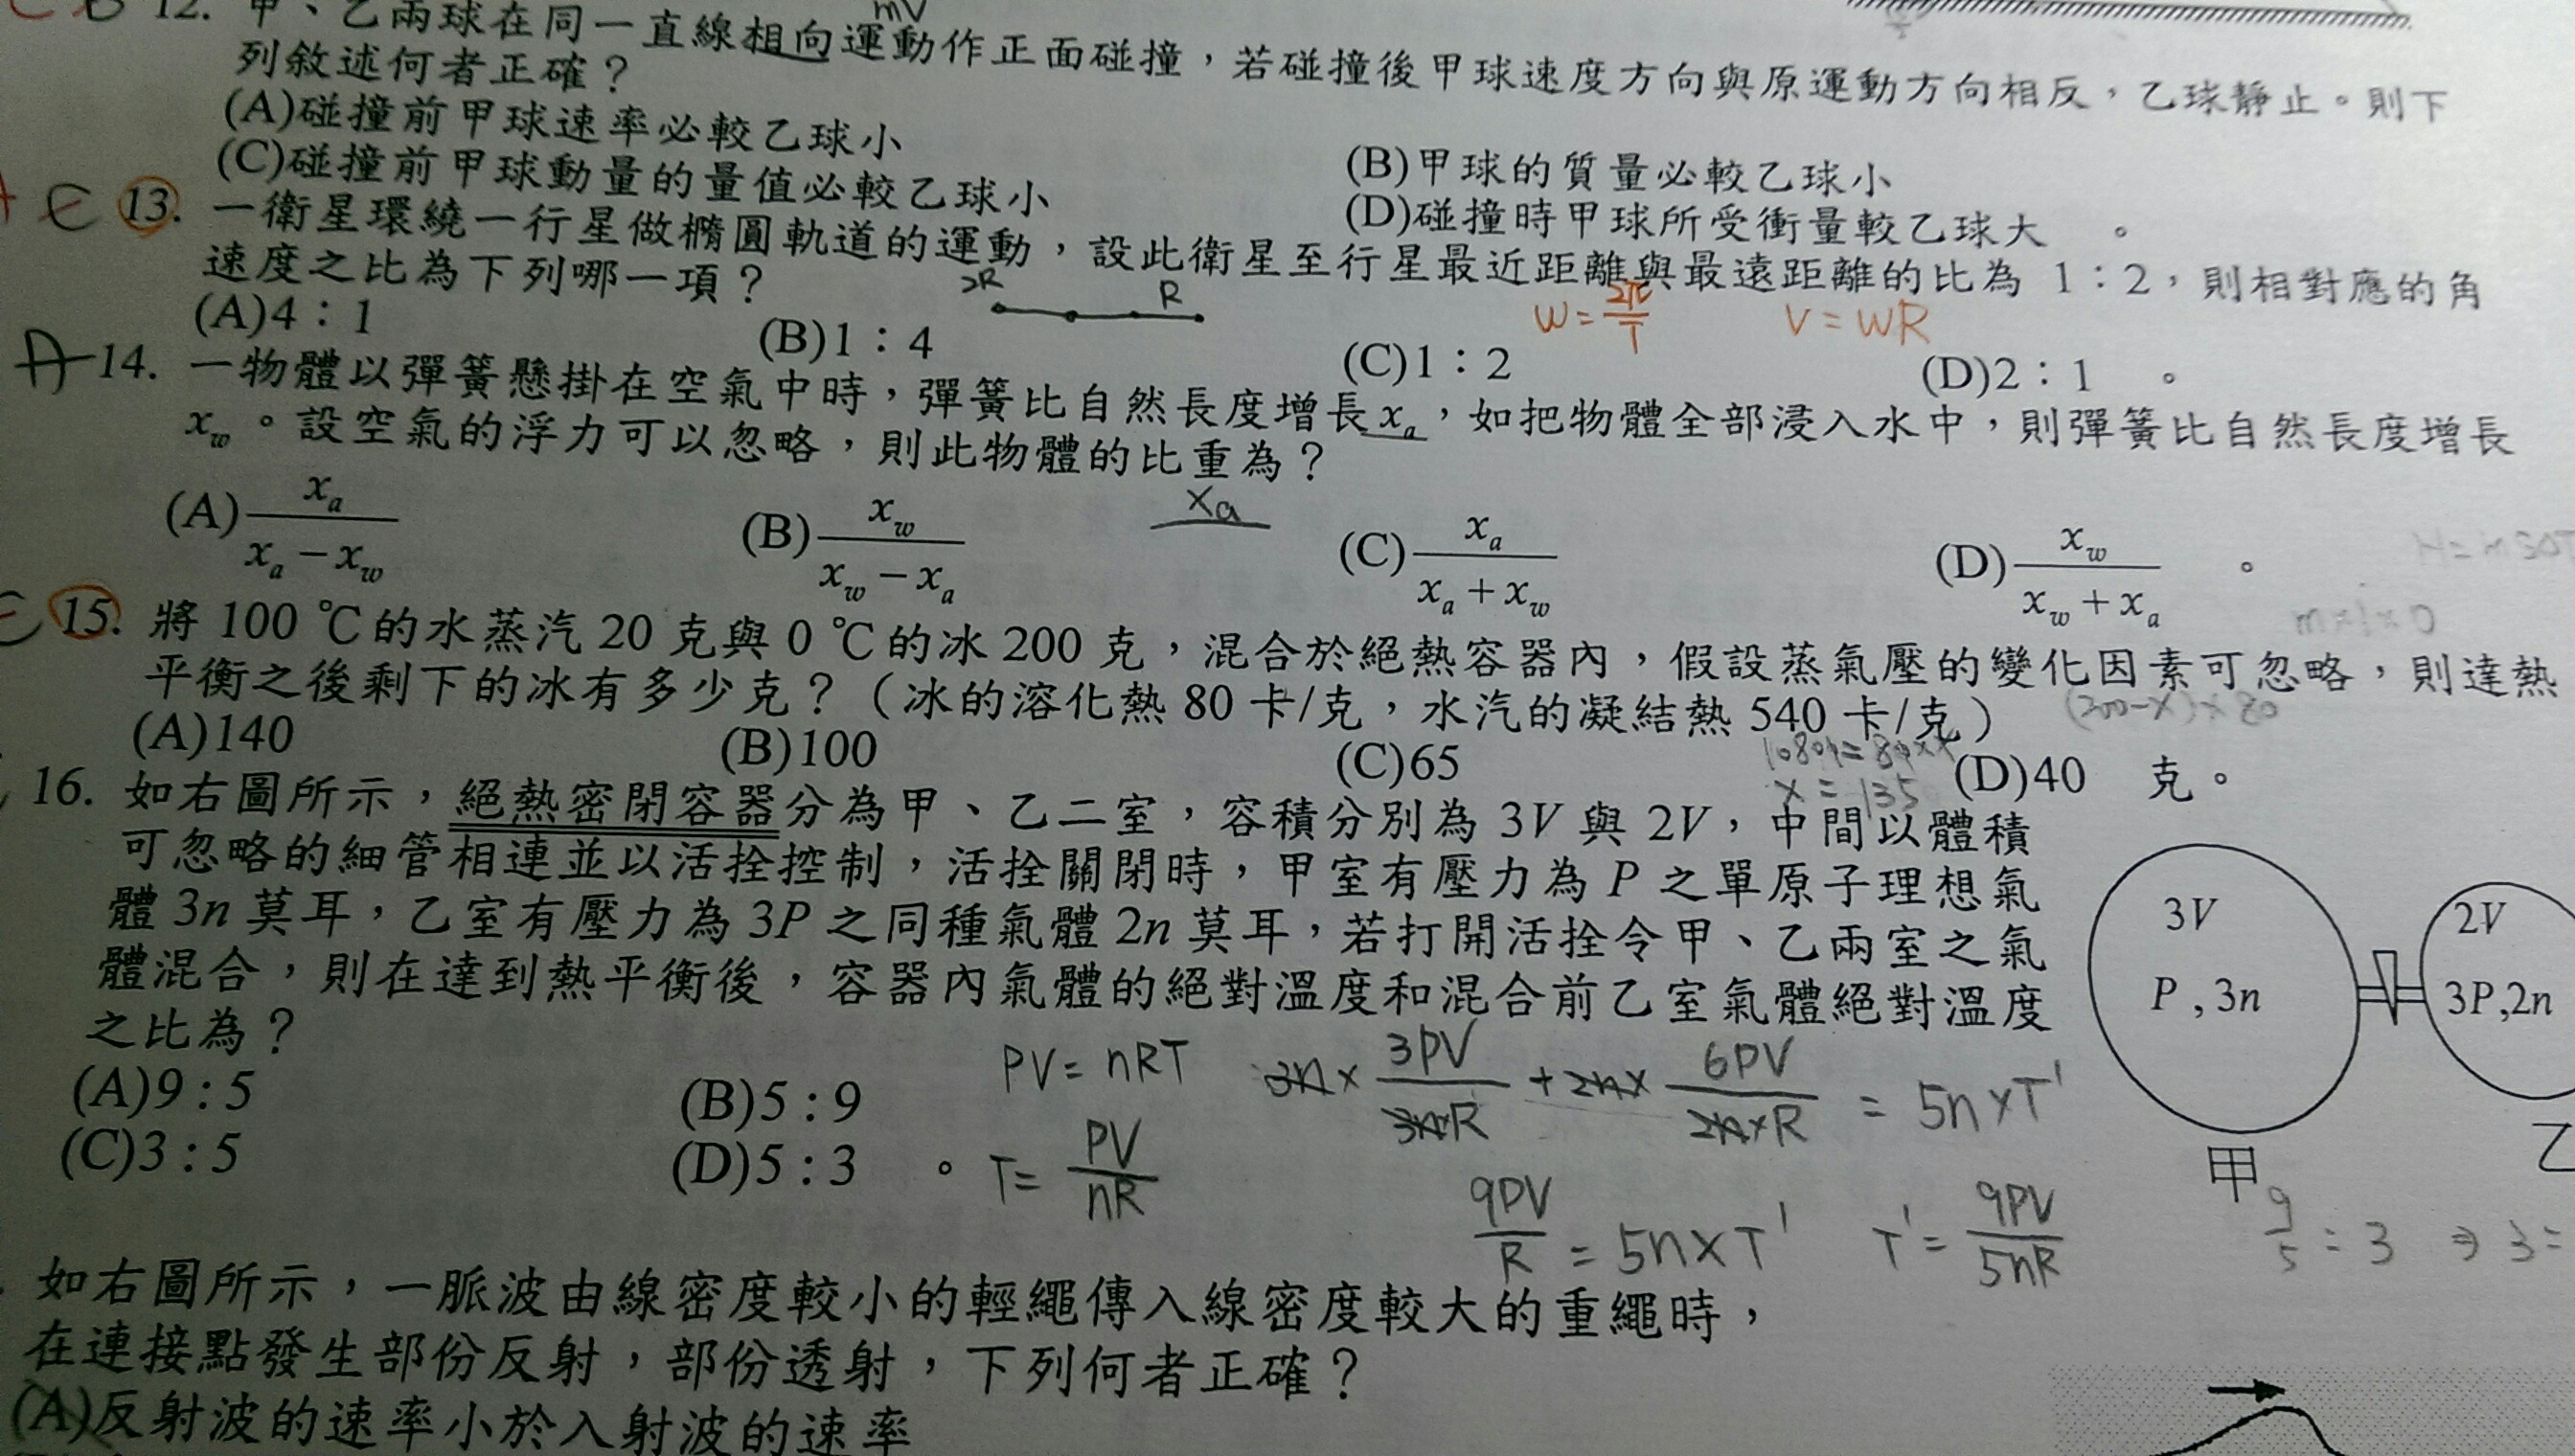 12. 甲、乙兩球在同一直線相向運動作正面碰撞，若碰撞後甲球速度方向與原運動方向相反，乙球靜止。則下
mV
列敘述何者正確？
(A)碰撞前甲球速率必較乙球小
(B)甲球的質量必較乙球小
(C)碰撞前甲球動量的量值必較乙球小
(D)碰撞時甲球所受衝量較乙球大 。
13. 一衛星環繞一行星做橢圓軌道的運動，設此衛星至行星最近距離與最遠距離的比為 1：2，則相對應的角
速度之比為下列哪一項？
2R R
W = 2π/T V = WR
(A)4：1 (B)1：4 (C)1：2 (D)2：1 。
A 14. 一物體以彈簧懸掛在空氣中時，彈簧比自然長度增長 xa，如把物體全部浸入水中，則彈簧比自然長度增長
xw。設空氣的浮力可以忽略，則此物體的比重為？
Xa
(A) xa/(xa − xw) (B) xw/(xw − xa) (C) xa/(xa + xw) (D) xw/(xw + xa) 。
15. 將 100 ℃的水蒸汽 20 克與 0 ℃的冰 200 克，混合於絕熱容器內，假設蒸氣壓的變化因素可忽略，則達熱
平衡之後剩下的冰有多少克？（冰的溶化熱 80 卡/克，水汽的凝結熱 540 卡/克）
(200-x)×80
(A)140 (B)100 (C)65 (D)40 克。
x = 135
16. 如右圖所示，絕熱密閉容器分為甲、乙二室，容積分別為 3V 與 2V，中間以體積
可忽略的細管相連並以活拴控制，活拴關閉時，甲室有壓力為 P 之單原子理想氣
體 3n 莫耳，乙室有壓力為 3P 之同種氣體 2n 莫耳，若打開活拴令甲、乙兩室之氣
體混合，則在達到熱平衡後，容器內氣體的絕對溫度和混合前乙室氣體絕對溫度
之比為？
3V 2V
P , 3n 3P,2n
甲 乙
(A)9 : 5 (B)5 : 9
(C)3 : 5 (D)5 : 3 。
PV = nRT 3n × 3PV/3n×R + 2n× 6PV/2n×R = 5n×T'
T = PV/nR
9PV/R = 5n×T' T' = 9PV/5nR
9/5 : 3 ⇒ 3 :
如右圖所示，一脈波由線密度較小的輕繩傳入線密度較大的重繩時，
在連接點發生部份反射，部份透射，下列何者正確？
(A)反射波的速率小於入射波的速率